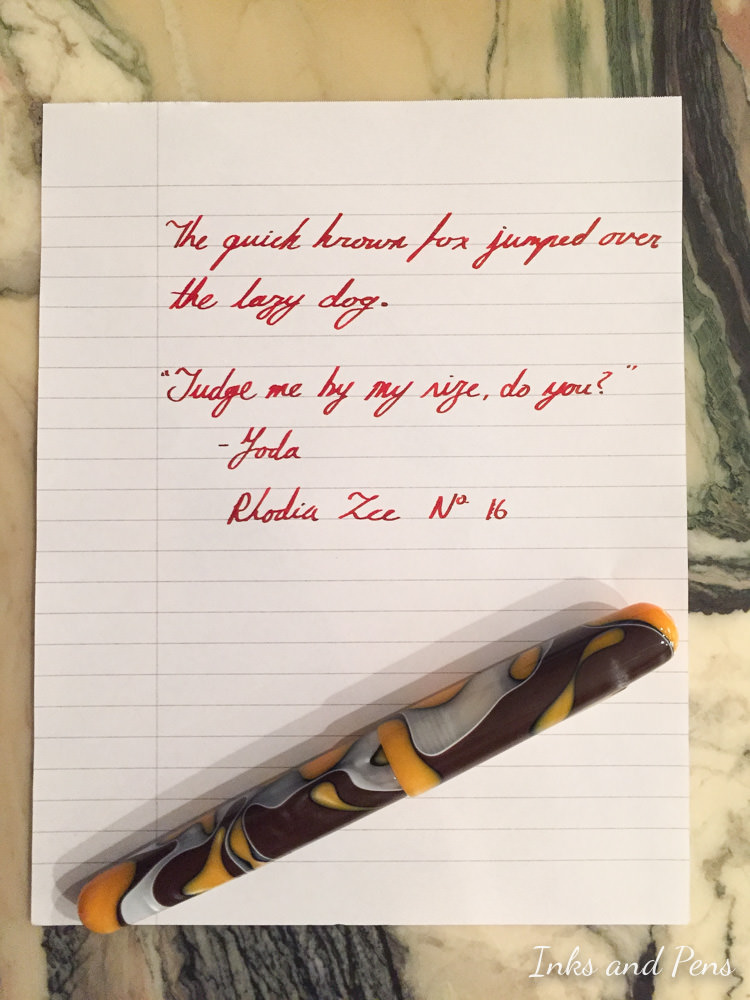 The quick brown fox jumped over
the lazy dog.
"Judge me by my size, do you?"
- Yoda
Rhodia Ice Nº 16
Inks and Pens